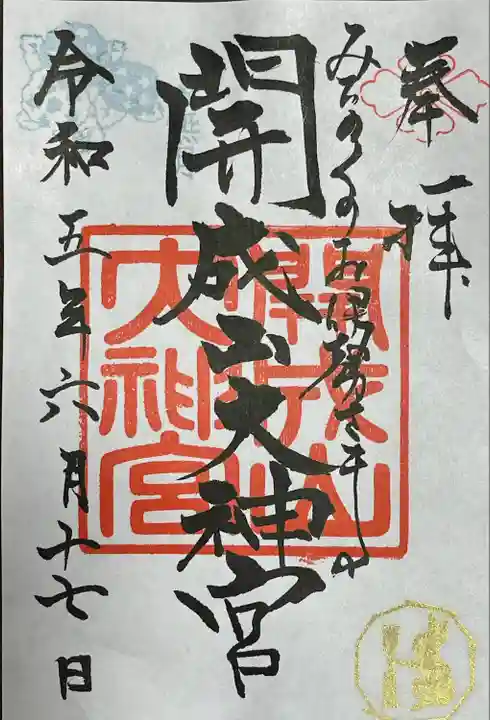 奉拝
みちのくのお伊勢さま
開成山大神宮
開成山大神宮
令和五年六月十七日